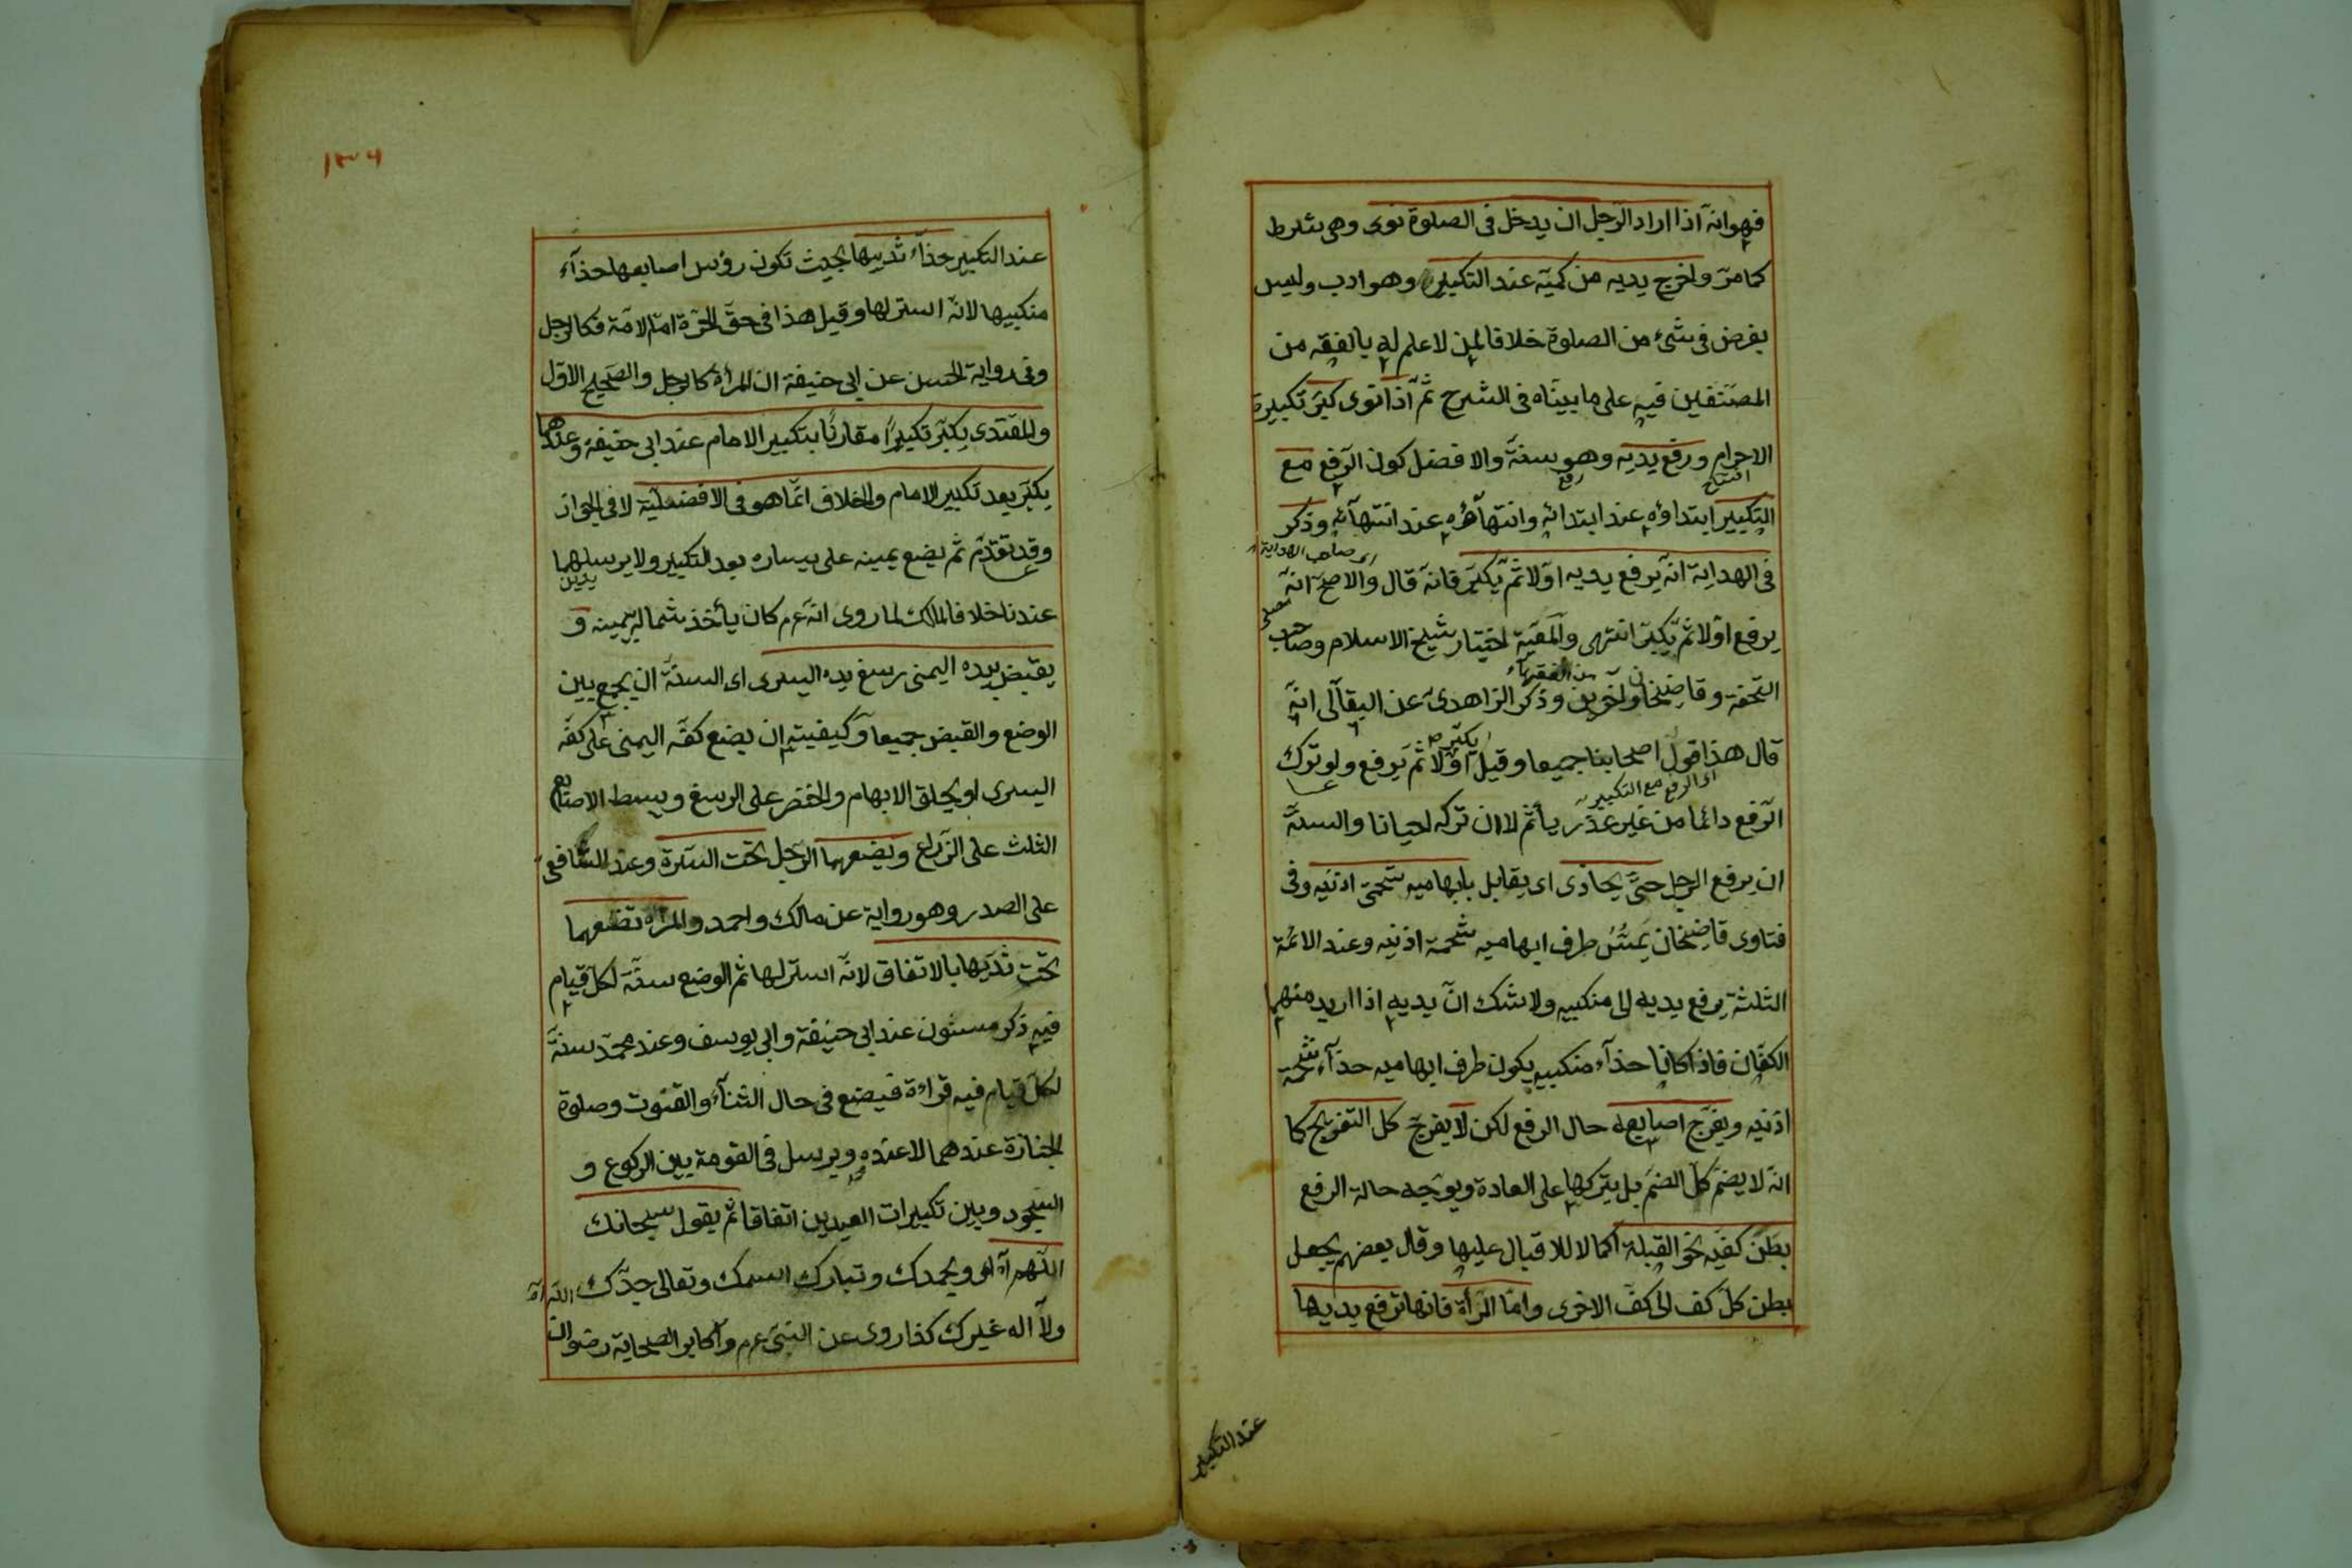 فهو انه اذا اراد الرجل ان يدخل فى الصلوة نوى وهى شرط
كما مرّ واخرج يديه من كميّه عند التكبير وهو ادب وليس
بفرض فى شئ من الصلوة خلافا لمن لا علم له بالفقه من
المصنّفين فيه على ما بيناه فى الشرح ثمّ اذا نوى كبّر تكبيرة
الاحرام ورفع يديه وهو سنةّ والافضل كون الرّفع مع
افتتاح
رفع
التكبير ابتداؤه عند ابتدائه وانتهاؤه عند انتهائه وذكر
اى صاحب الهداية
فى الهداية انّه يرفع يديه اوّلا ثمّ يكبّر فانه قال والاصحّ انّه
يرفع اوّلا ثمّ يكبّر انتهى والمعيّة اختيار شيخ الاسلام وصاحب
من الفقهاء
التحفة وقاضيخان واخرين وذكر الزاهدى عن البقالى انّه
يكبّر
قال هذا قول اصحابنا جميعا وقيل اوّلا ثمّ يرفع ولو ترك
اى الرفع مع التكبير
الرّفع دائما من غير عذر يأثم لا ان تركه احيانا والسنّة
ان يرفع الرجل حتّى يحاذى اى يقابل بابهاميه شحمتى اذنيه وفى
فتاوى قاضيخان يمسّ طرف ابهاميه شحمة اذنيه وعند الائمة
الثلثة يرفع يديه الى منكبيه ولا شك انّ يديه اذا اريد منهما
الكفّان فاذا كانا حذاء منكبيه يكون طرف ابهاميه حذاء شحمة
اذنيه ويفرّج اصابعه حال الرفع لكن لا يفرّج كل التفريج كما
انّه لا يضمّ كلّ الضمّ بل يتركها على العادة ويوجّه حالة الرفع
بطن كفّيه نحو القبلة اكمالا للاقبال عليها وقال بعضهم يجعل
بطن كلّ كف الى كفّ الاخرى وامّا المرأة فانها ترفع يديها
عند التكبير
١٣٠٦
عند التكبير حذاء ثدييها بحيث تكون رؤس اصابعها حذاء
منكبيها لانّه استر لها وقيل هذا فى حقّ الحرّة امّا الامة فكالرجل
وفى رواية الحسن عن ابى حنيفة ان المرأة كالرجل والصحيح الاوّل
والمقتدى يكبّر تكبيرًا مقارنًا بتكبير الامام عند ابى حنيفة وعندهما
يكبّر بعد تكبير الامام والخلاف انّما هو فى الافضليّة لا فى الجواز
وقد تقدّم ثم يضع يمينه على يساره بعد التكبير ولا يرسلهما
يدين
عندنا خلافا لمالك لما روى انّه عم كان يأخذ شماله بيمينه و
يقبض بيده اليمنى رسغ يده اليسرى اى السنةّ ان يجمع بين
الوضع والقبض جميعا وكيفيته ان يضع كفّه اليمنى على كفّه
اليسرى او يحلق الابهام والخنصر على الرسغ ويبسط الاصابع
الثلث على الزراع ويضعهما الرّجل تحت السّرة وعند الشافعى
على الصدر وهو رواية عن مالك واحمد والمراة تضعهما
تحت ثديها بالاتفاق لانّه استر لها ثم الوضع سنّة لكلّ قيام
فيه ذكر مسنون عند ابى حنيفة وابى يوسف وعند محمّد سنّة
لكلّ قيام فيه قراءة فيضع فى حال الثناء والقنوت وصلوة
الجنازة عندهما لا عنده ويرسل فى القومة بين الركوع و
السجود وبين تكبيرات العيدين اتفاقا ثم يقول سبحانك
اللّهم وبحمدك وتبارك اسمك وتعالى جدّك
ولا اله غيرك كذا روى عن النبىّ عم واكابر الصحابة رضوان